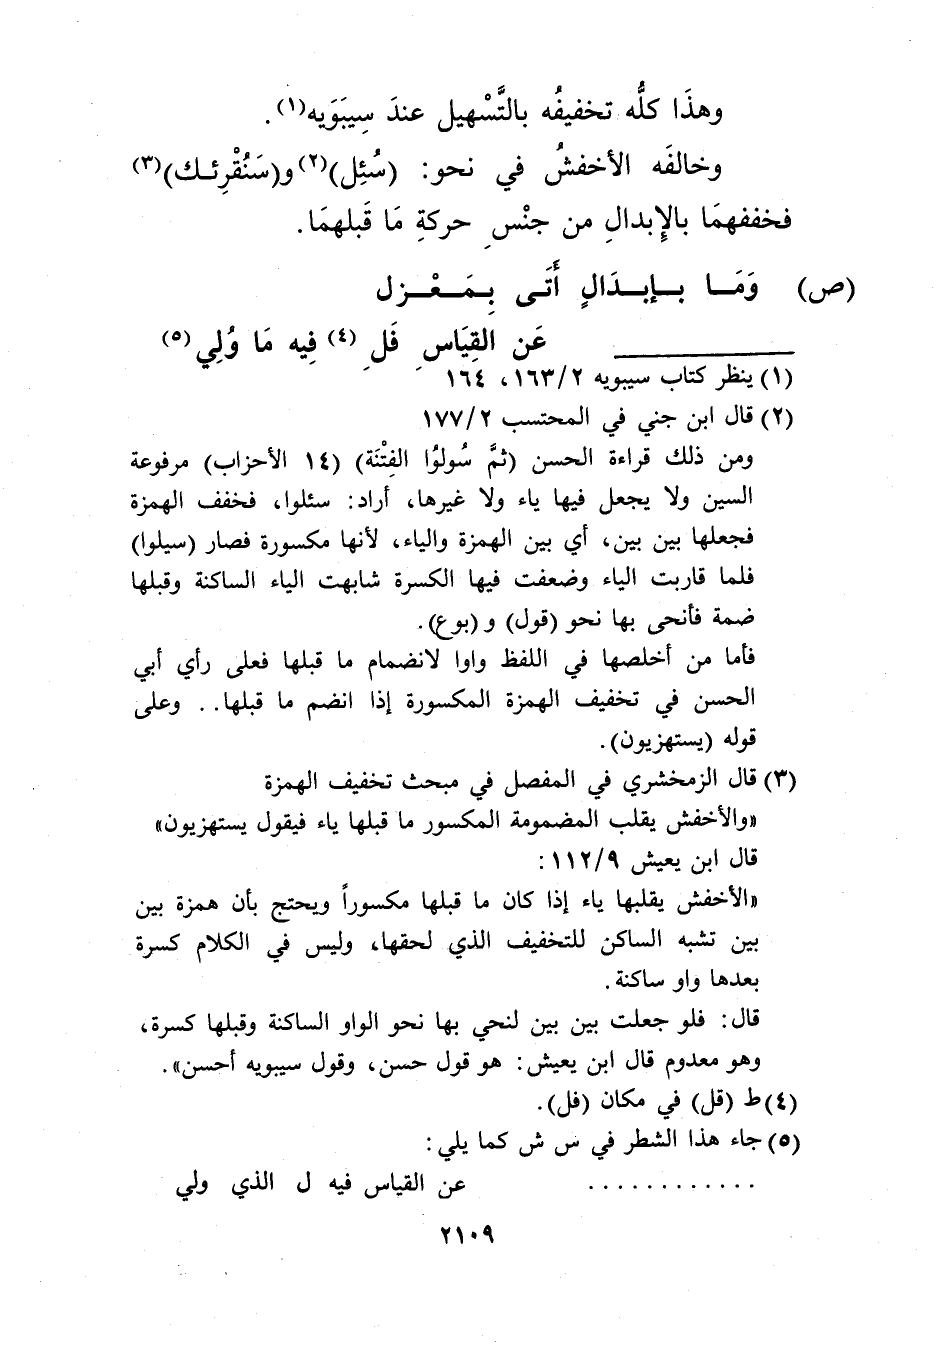 وهذَا كلُّه تخفيفُه بالتَّسْهيل عندَ سِيبَوَيه(١).
وخالفَه الأخفشُ في نحو: (سُئِل)(٢) و(سَنُقْرِئك)(٣)
فخففهمَا بالإِبدالِ من جنْسِ حركةِ مَا قَبلهمَا.
(ص) وَمَا بِإبدَالٍ أَتَى بِمَعْزِل
عَن القِيَاسِ فَلِ (٤) فِيه مَا وُلِي (٥)
(١) ينظر كتاب سيبويه ١٦٣/٢، ١٦٤
(٢) قال ابن جني في المحتسب ١٧٧/٢
ومن ذلك قراءة الحسن (ثمَّ سُولوُا الفِتْنَة) (١٤ الأحزاب) مرفوعة
السين ولا يجعل فيها ياء ولا غيرها، أراد: سئلوا، فخفف الهمزة
فجعلها بين بين، أي بين الهمزة والياء، لأنها مكسورة فصار (سيلوا)
فلما قاربت الياء وضعفت فيها الكسرة شابهت الياء الساكنة وقبلها
ضمة فأنحى بها نحو (قول) و (بوع).
فأما من أخلصها في اللفظ واوا لانضمام ما قبلها فعلى رأي أبي
الحسن في تخفيف الهمزة المكسورة إذا انضم ما قبلها.. وعلى
قوله (يستهزيون).
(٣) قال الزمخشري في المفصل في مبحث تخفيف الهمزة
«والأخفش يقلب المضمومة المكسور ما قبلها ياء فيقول يستهزيون»
قال ابن يعيش ١١٢/٩:
«الأخفش يقلبها ياء إذا كان ما قبلها مكسوراً ويحتج بأن همزة بين
بين تشبه الساكن للتخفيف الذي لحقها، وليس في الكلام كسرة
بعدها واو ساكنة.
قال: فلو جعلت بين بين لنحي بها نحو الواو الساكنة وقبلها كسرة،
وهو معدوم قال ابن يعيش: هو قول حسن، وقول سيبويه أحسن».
(٤) ط (قل) في مكان (فل).
(٥) جاء هذا الشطر في س ش كما يلي:
............ عن القياس فيه ل الذي ولي
٢١٠٩